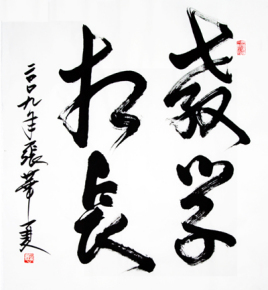 教学
相长
二〇〇九年张华夏